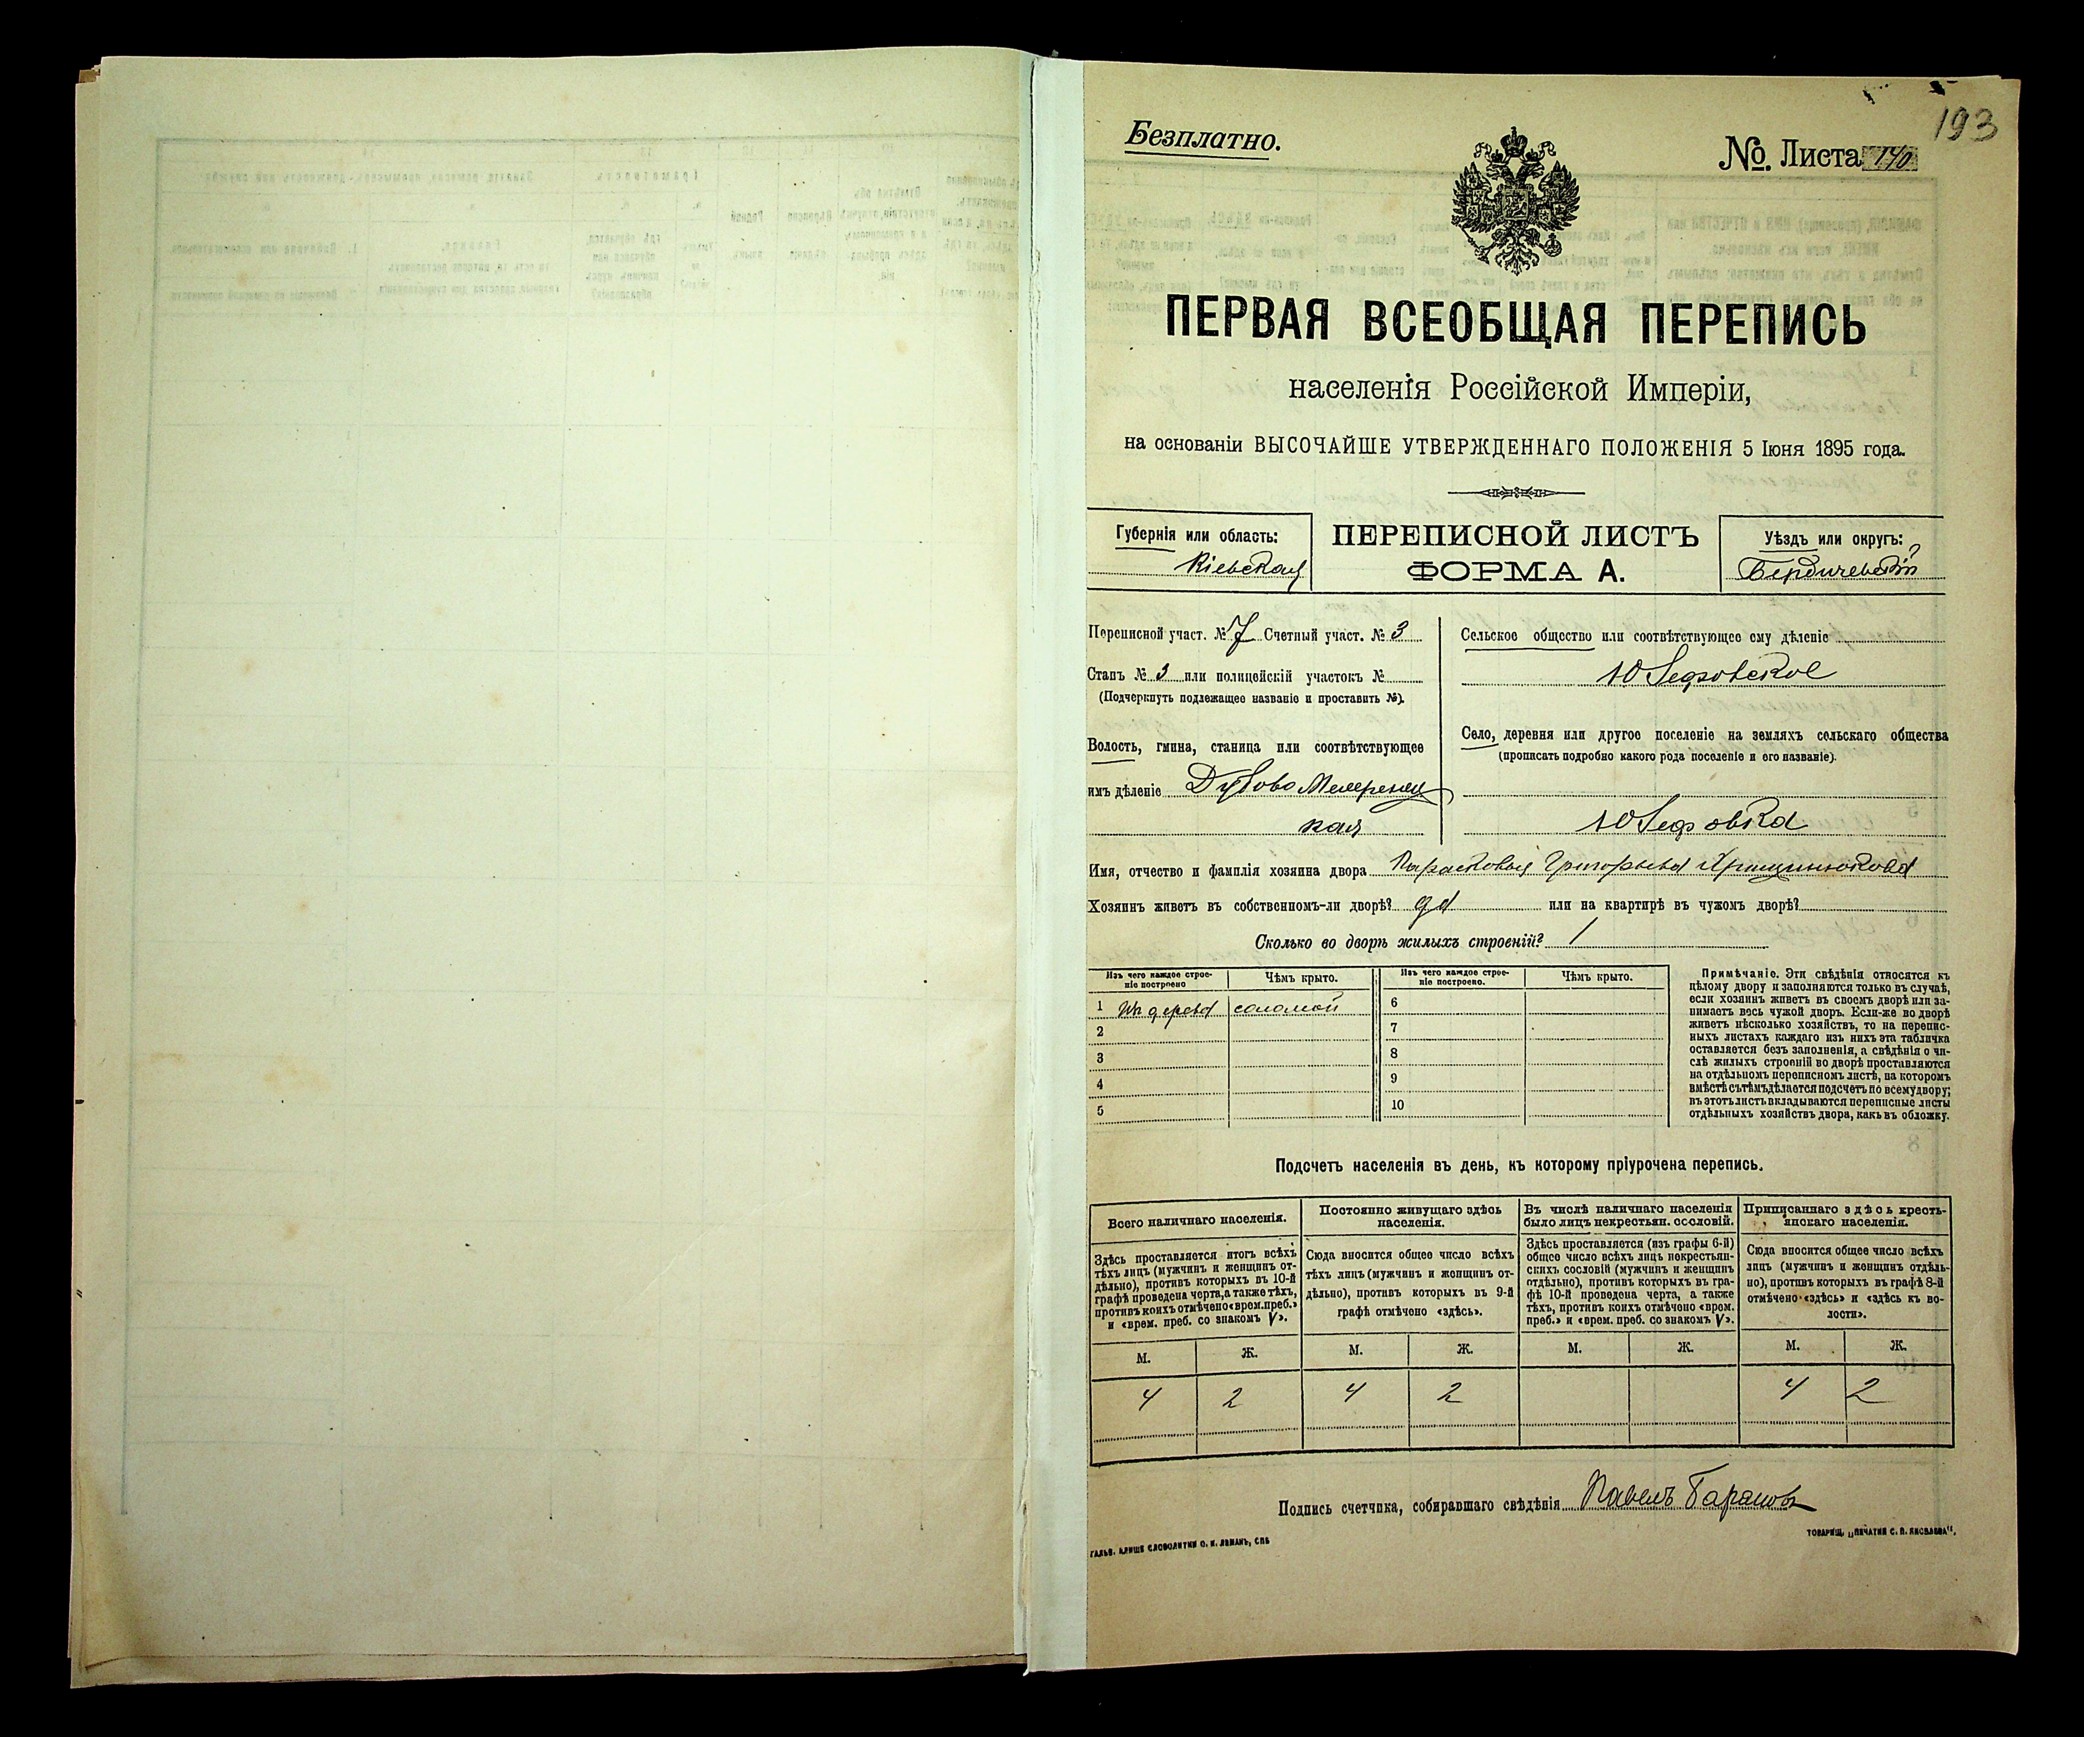 193
Безплатно.
№ Листа 140
ПЕРВАЯ ВСЕОБЩАЯ ПЕРЕПИСЬ
населенія Россійской Имперіи,
на основаніи ВЫСОЧАЙШЕ УТВЕРЖДЕННАГО ПОЛОЖЕНІЯ 5 Іюня 1895 года.
Губернія или область:
Кіевская
ПЕРЕПИСНОЙ ЛИСТЪ
ФОРМА А.
Уѣздъ или округъ:
Бердичевскій
Переписной участ. № 7 Счетный участ. № 3
Станъ № 3 или полицейскій участокъ №
(Подчеркнуть подлежащее названіе и проставить №).
Волость, гмина, станица или соотвѣтствующее
имъ дѣленіе Дубово Махаринец
кая
Сельское общество или соотвѣтствующее ему дѣленіе
Юзефовское
Село, деревня или другое поселеніе на земляхъ сельскаго общества
(прописать подробно какого рода поселеніе и его названіе).
Юзефовка
Имя, отчество и фамилія хозяина двора Парасковья Григорьева
Хозяинъ живетъ въ собственномъ-ли дворѣ? да или на квартирѣ въ чужомъ дворѣ?
Сколько во дворѣ жилыхъ строеній? 1
Изъ чего каждое строе-
ніе построено
Чѣмъ крыто.
Изъ чего каждое строе-
ніе построено.
Чѣмъ крыто.
1 Изъ дерева соломой
2
3
4
5
6
7
8
9
10
Примѣчаніе. Эти свѣдѣнія относятся къ
цѣлому двору и заполняются только въ случаѣ,
если хозяинъ живетъ въ своемъ дворѣ или за-
нимаетъ весь чужой дворъ. Если-же во дворѣ
живетъ нѣсколько хозяйствъ, то на перепис-
ныхъ листахъ каждаго изъ нихъ эта табличка
оставляется безъ заполненія, а свѣдѣнія о чи-
слѣ жилыхъ строеній во дворѣ проставляются
на отдѣльномъ переписномъ листѣ, на которомъ
вмѣстѣ съ тѣмъ дѣлается подсчетъ по всему двору;
въ этотъ листъ вкладываются переписные листы
отдѣльныхъ хозяйствъ двора, какъ въ обложку.
Подсчетъ населенія въ день, къ которому пріурочена перепись.
Всего наличнаго населенія.
Здѣсь проставляется итогъ всѣхъ
тѣхъ лицъ (мужчинъ и женщинъ от-
дѣльно), противъ которыхъ въ 10-й
графѣ проведена черта, а также тѣхъ,
противъ коихъ отмѣчено «врем. преб.»
и «врем. преб. со знакомъ V».
Постоянно живущаго здѣсь
населенія.
Сюда вносится общее число всѣхъ
тѣхъ лицъ (мужчинъ и женщинъ от-
дѣльно), противъ которыхъ въ 9-й
графѣ отмѣчено «здѣсь».
Въ числѣ наличнаго населенія
было лицъ некрестьян. сословій.
Здѣсь проставляется (изъ графы 6-й)
общее число всѣхъ лицъ некрестьян-
скихъ сословій (мужчинъ и женщинъ
отдѣльно), противъ которыхъ въ гра-
фѣ 10-й проведена черта, а также
тѣхъ, противъ коихъ отмѣчено «врем.
преб.» и «врем. преб. со знакомъ V».
Приписаннаго здѣсь кресть-
янскаго населенія.
Сюда вносится общее число всѣхъ
лицъ (мужчинъ и женщинъ отдѣль-
но), противъ которыхъ въ графѣ 8-й
отмѣчено «здѣсь» и «здѣсь къ во-
лости».
М. Ж. М. Ж. М. Ж. М. Ж.
4 2 4 2 4 2
Подпись счетчика, собиравшаго свѣдѣнія Павелъ Барановъ
ГАЛЬВ. КЛИШЕ СЛОВОЛИТНИ О. И. ЛЕМАНЪ, СПБ
ТОВАРИЩ. „ПЕЧАТНИ С. П. ЯКОВЛЕВА".